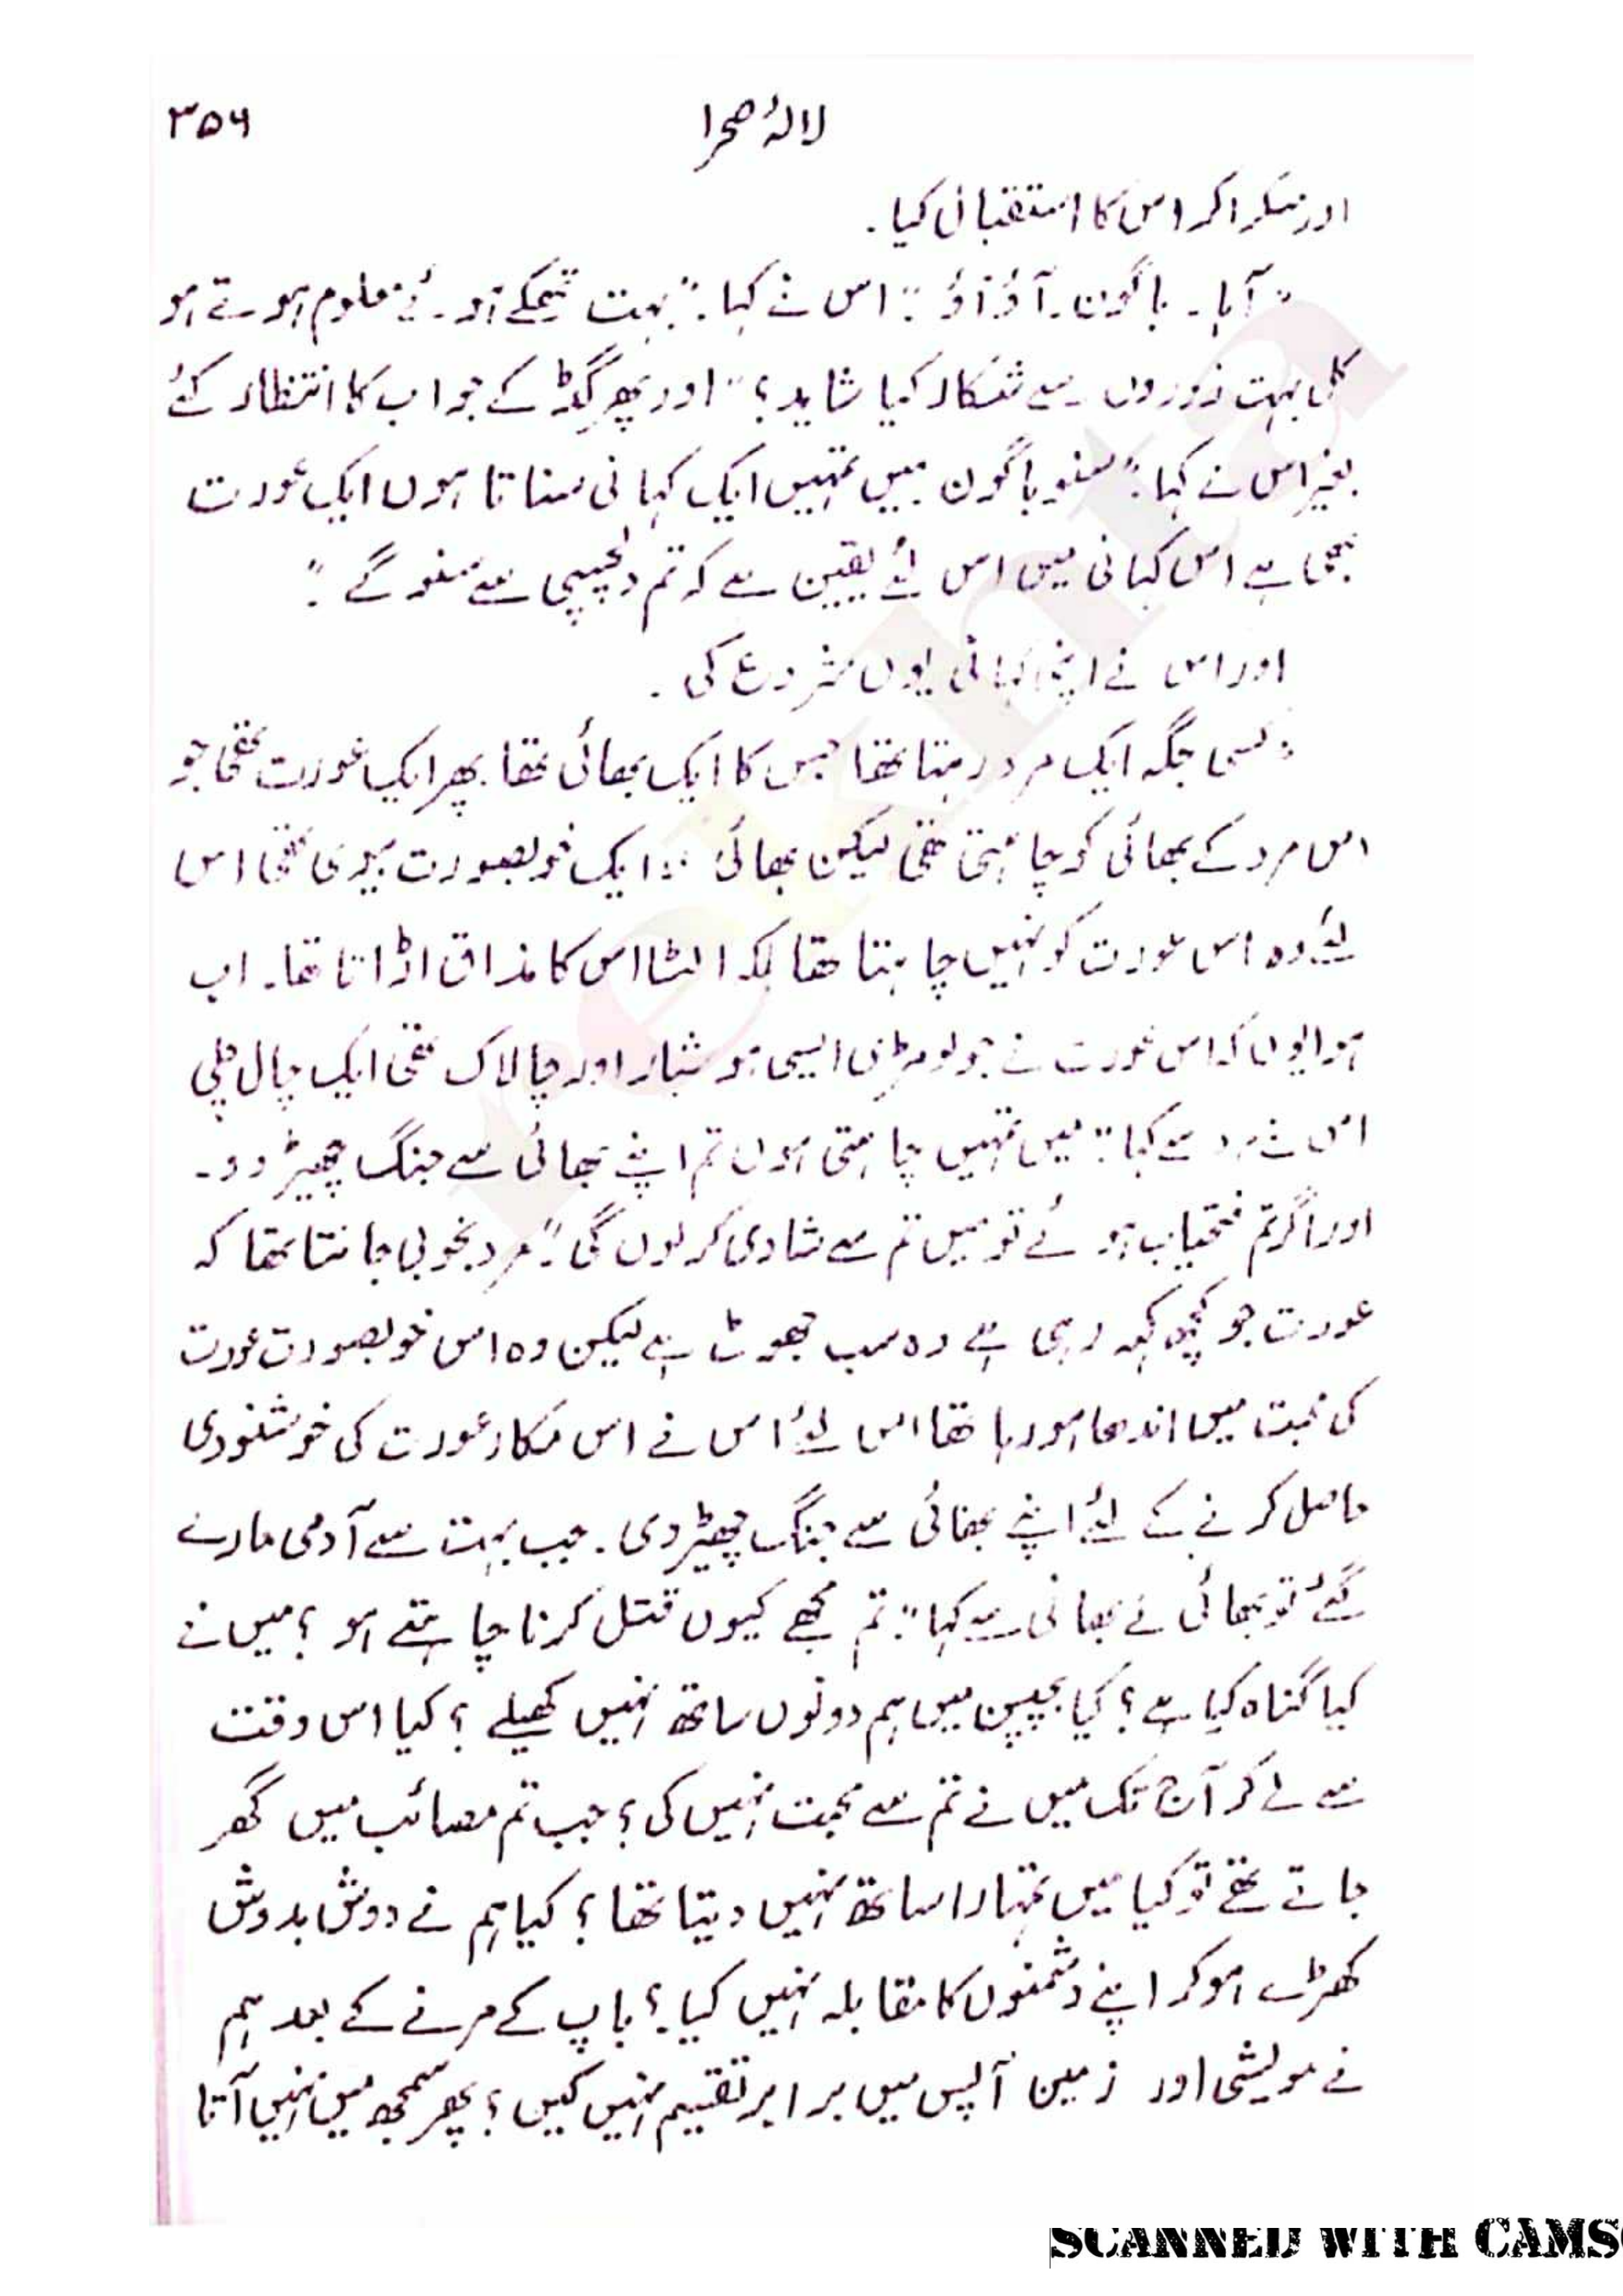 لالۂ صحرا ۳۵۶
اور مسکرا کر اس کا استقبال کیا۔
"آہا۔ باگون۔ آؤ آؤ" اس نے کہا۔ "بہت تھکے ہوئے معلوم ہوتے ہو
کل بہت زوروں سے شکار کیا شاید؟" اور پھر گڈ کے جواب کا انتظار کئے
بغیر اس نے کہا۔ "سنو باگون میں تمہیں ایک کہانی سناتا ہوں ایک عورت
بھی ہے اس کہانی میں اس لئے یقین ہے کہ تم دلچسپی سے سنو گے۔"
اور اس نے اپنی کہانی یوں شروع کی۔
"کسی جگہ ایک مرد رہتا تھا جس کا ایک بھائی تھا پھر ایک عورت تھی جو
اس مرد کے بھائی کو چاہتی تھی لیکن بھائی ایک خوبصورت بیوی تھی اس
لئے وہ اس عورت کو نہیں چاہتا تھا بلکہ الٹا اس کا مذاق اڑاتا تھا۔ اب
ہوا یوں کہ اس عورت نے جو لومڑی ایسی ہوشیار اور چالاک تھی ایک چال چلی
اس نے مرد سے کہا" میں تمہیں چاہتی ہوں تم اپنے بھائی سے جنگ چھیڑ دو۔
اور اگر تم فتحیاب ہوئے تو میں تم سے شادی کر لوں گی۔" مرد بخوبی جانتا تھا کہ
عورت جو کچھ کہہ رہی ہے وہ سب جھوٹ ہے لیکن وہ اس خوبصورت عورت
کی محبت میں اندھا ہو رہا تھا اس لئے اس نے اس مکار عورت کی خوشنودی
حاصل کرنے کے لئے اپنے بھائی سے جنگ چھیڑ دی۔ جب بہت سے آدمی مارے
گئے تو بھائی نے بھائی سے کہا" تم مجھے کیوں قتل کرنا چاہتے ہو؟ میں نے
کیا گناہ کیا ہے؟ کیا بچپن میں ہم دونوں ساتھ نہیں کھیلے؟ کیا اس وقت
سے لے کر آج تک میں نے تم سے محبت نہیں کی؟ جب تم مصائب میں گھر
جاتے تھے تو کیا میں تمہارا ساتھ نہیں دیتا تھا؟ کیا ہم نے دوش بدوش
کھڑے ہو کر اپنے دشمنوں کا مقابلہ نہیں کیا؟ باپ کے مرنے کے بعد ہم
نے مویشی اور زمین آپس میں برابر تقسیم نہیں کیں؟ پھر سمجھ میں نہیں آتا
rekhta
SCANNED WITH CAMS